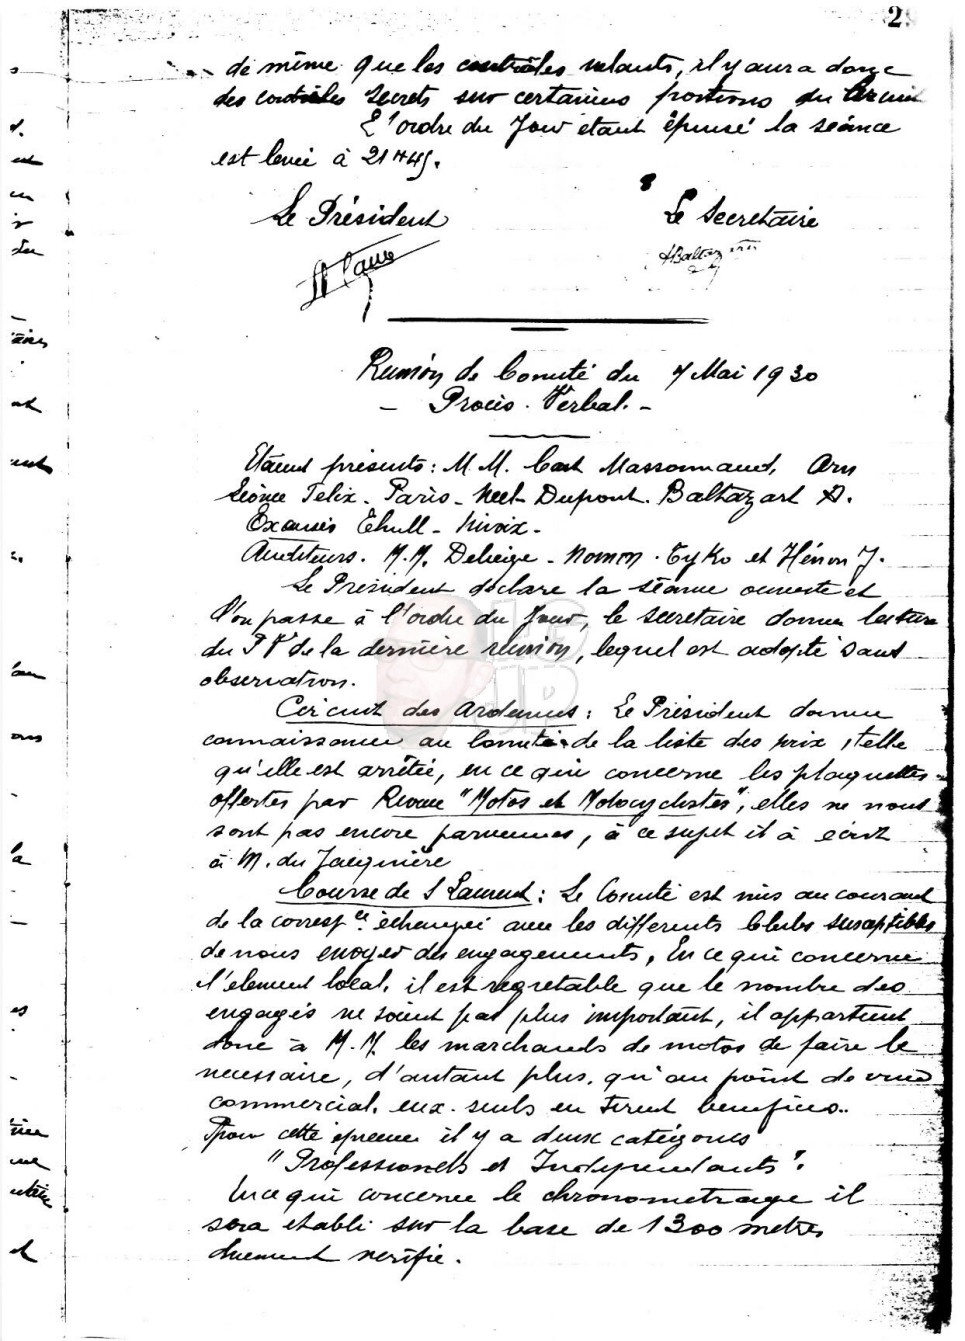 2
de même que les contrôles volants, il y aura donc
des contrôles secrets sur certaines portions du Circuit
L'ordre du Jour étant épuisé la séance
est levée à 21 H 45.
Le Président
Le Secretaire
ABaltazart
Reunion de Comité du 7 Mai 1930
- Procès-Verbal. -
Etaient présents: M M. Cart Massonnaud, Arn
Félix - Paris - Dupont. Baltazart A.
Excusés -
Auditeurs. M.M. Deliège - Nomon. Tyko et Hénon J.
Le Président déclare la séance ouverte et
l'on passe à l'ordre du Jour, le secretaire donne lecture
du PV de la dernière réunion, lequel est adopté sans
observation.
Circuit des Ardennes: Le Président donne
connaissance au Comité de la liste des prix, telle
qu'elle est arrêtée, en ce qui concerne les plaquettes
offertes par Revue "Motos et Motocyclistes", elles ne nous
sont pas encore parvenues, à ce sujet il à écrit
à M. du
Course de S Laurent: Le Comité est mis au courant
de la corresp ce échangée avec les différents Clubs susceptibles
de nous envoyer des engagements, En ce qui concerne
l'element local, il est regretable que le nombre des
engagés ne soient pas plus important, il appartient
donc à M.M. les marchands de motos de faire le
necessaire, d'autant plus, qu'au point de vue
commercial, eux-seuls en tirent benefices..
Pour cette épreuve il y a deux catégories
"Professionels et Independants".
En ce qui concerne le chronometrage il
sera etabli sur la base de 1300 metres
duement verifie.